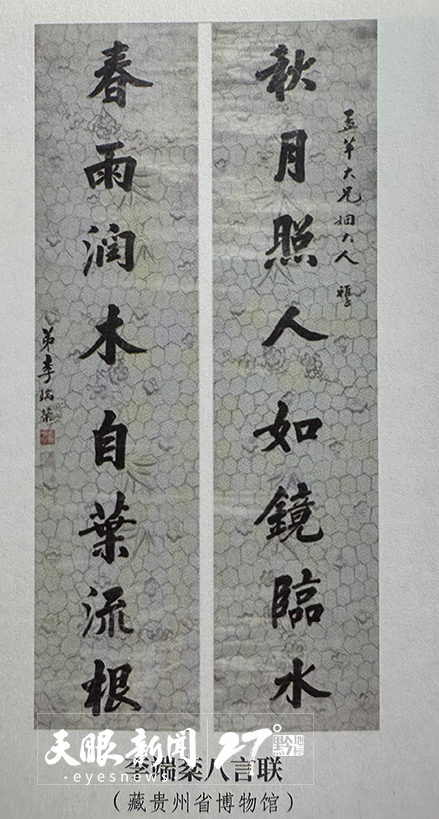 秋月照人如鏡臨水
大兄姻大人
春雨潤木自葉流根
弟李端棻
天眼新闻 27° 黔地标
·eyesnews·
李端棻八言联
（藏贵州省博物馆）